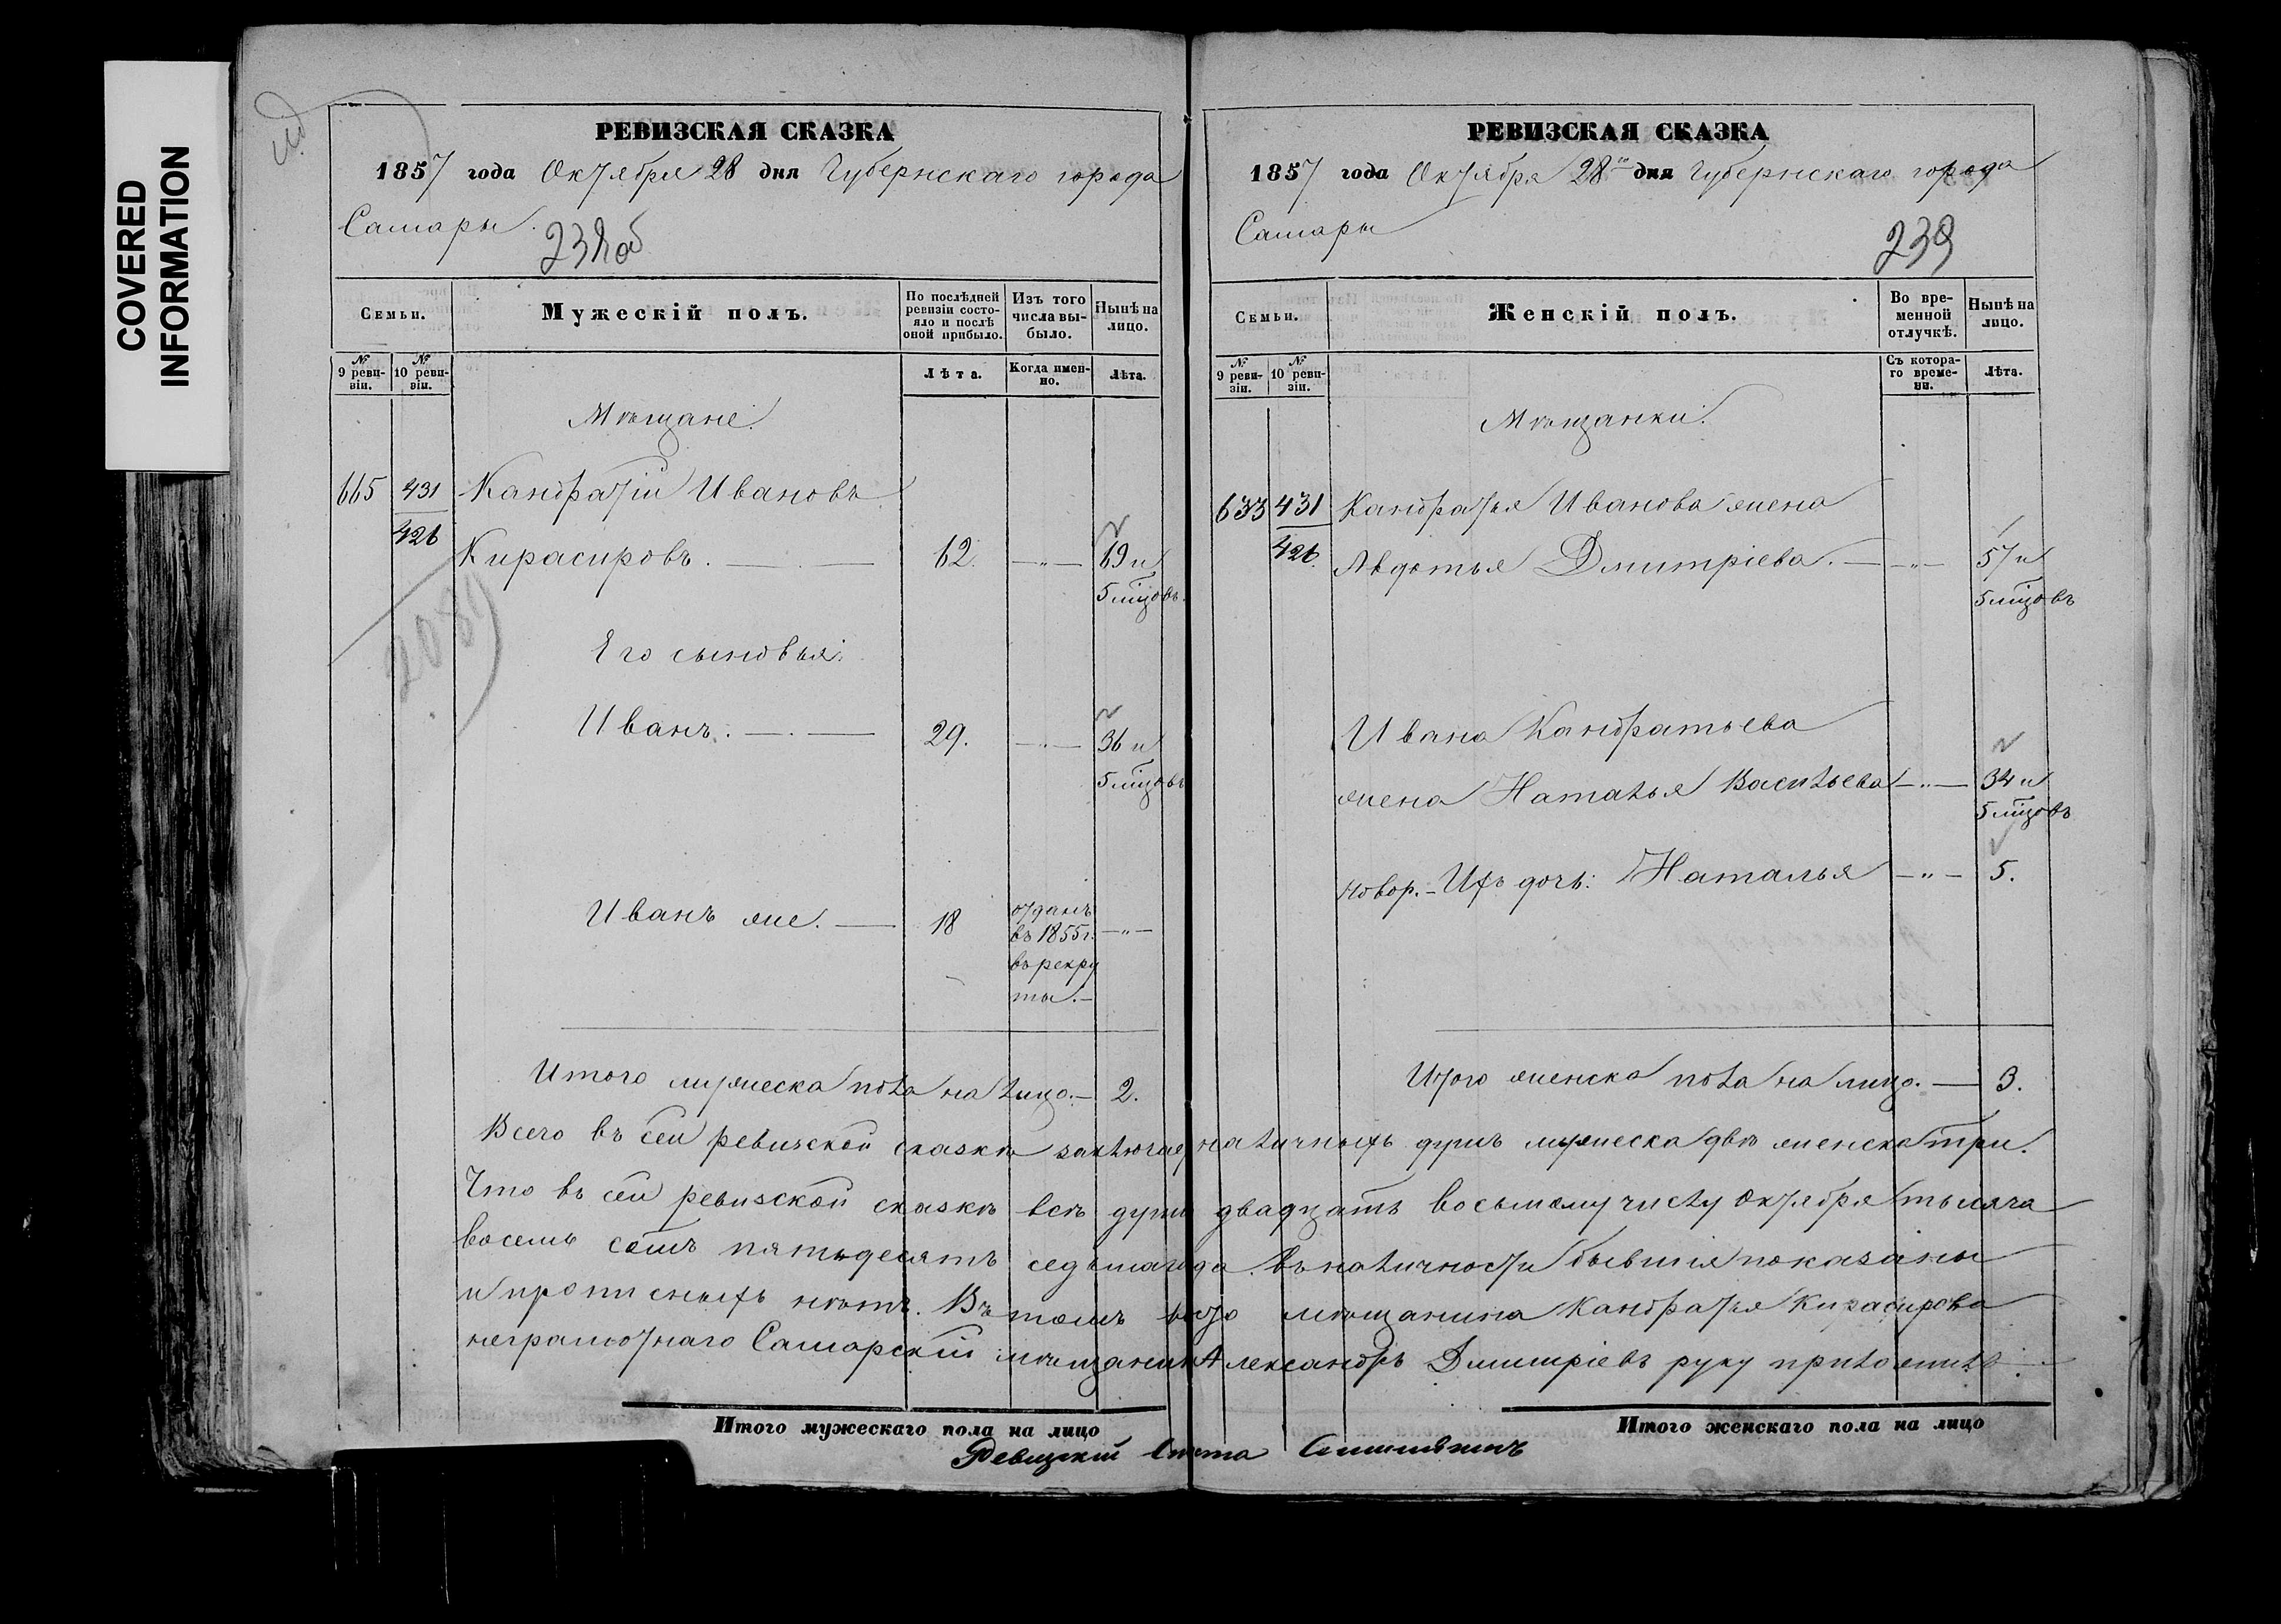 COVERED
INFORMATION
РЕВИЗСКАЯ СКАЗКА
1857 года Октября 28 дня Губернскаго города
Самары.
238об
Семьи.
Мужескій полъ.
По послѣдней ревизіи состояло и послѣ оной прибыло.
Изъ того числа выбыло.
Нынѣ на лицо.
№ 9 ревизіи.
№ 10 ревизіи.
Лѣта.
Когда именно.
Лѣта.
Мѣщане.
665 431 Кандратій Ивановъ
426 Кирасировъ. — 62. —"— 69 и
5 мѣцовъ.
2089
Его сыновья:
Иванъ. — 29. —"— 36 и
5 мѣцовъ
Иванъ же. — 18 отданъ —"—
въ 1855 г.
въ рекру
ты.—
Итого мужеска пола на лицо.— 2.
РЕВИЗСКАЯ СКАЗКА
1857 года Октября 28го дня Губернскаго города
Самары
239
Семьи.
Женскій полъ.
Во временной отлучкѣ.
Нынѣ на лицо.
№ 9 ревизіи.
№ 10 ревизіи.
Съ котораго времени.
Лѣта.
Мѣщанки.
633 431 Кандратья Иванова жена
426. Авдотья Дмитріева. —"— 57 и
5 мѣцовъ
Ивана Кандратьева
жена Наталья Васильева —"— 34 и
5 мѣцовъ
новор.- Ихъ дочь: Наталья —"— 5.
Итого женска пола на лицо. — 3.
Всего въ сей ревизской сказкѣ заключае наличныхъ душъ мужеска двѣ женска три.
Что въ сей ревизской сказкѣ всѣ души двадцать восьмому числу Октября тысяча
восемь сотъ пятьдесятъ седьмаго года въ наличности бывшія показаны
и прописныхъ нѣтъ. Въ томъ вмѣсто мѣщанина Кандратья Кирасирова
неграмотнаго Самарскій мѣщанинъ Александръ Дмитріевъ руку приложилъ.
Итого мужескаго пола на лицо
Итого женскаго пола на лицо